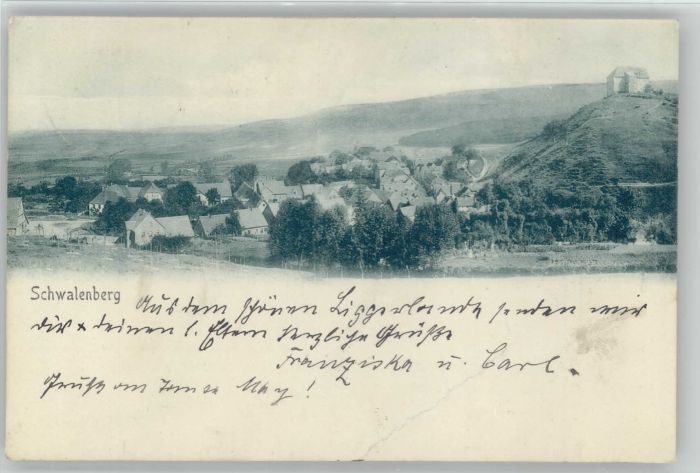 Schwalenberg
Aus dem schönen Liggerlande senden wir
dir & deinen l. Eltern herzliche Grüße
Franziska u. Carl.
Gruß an May!